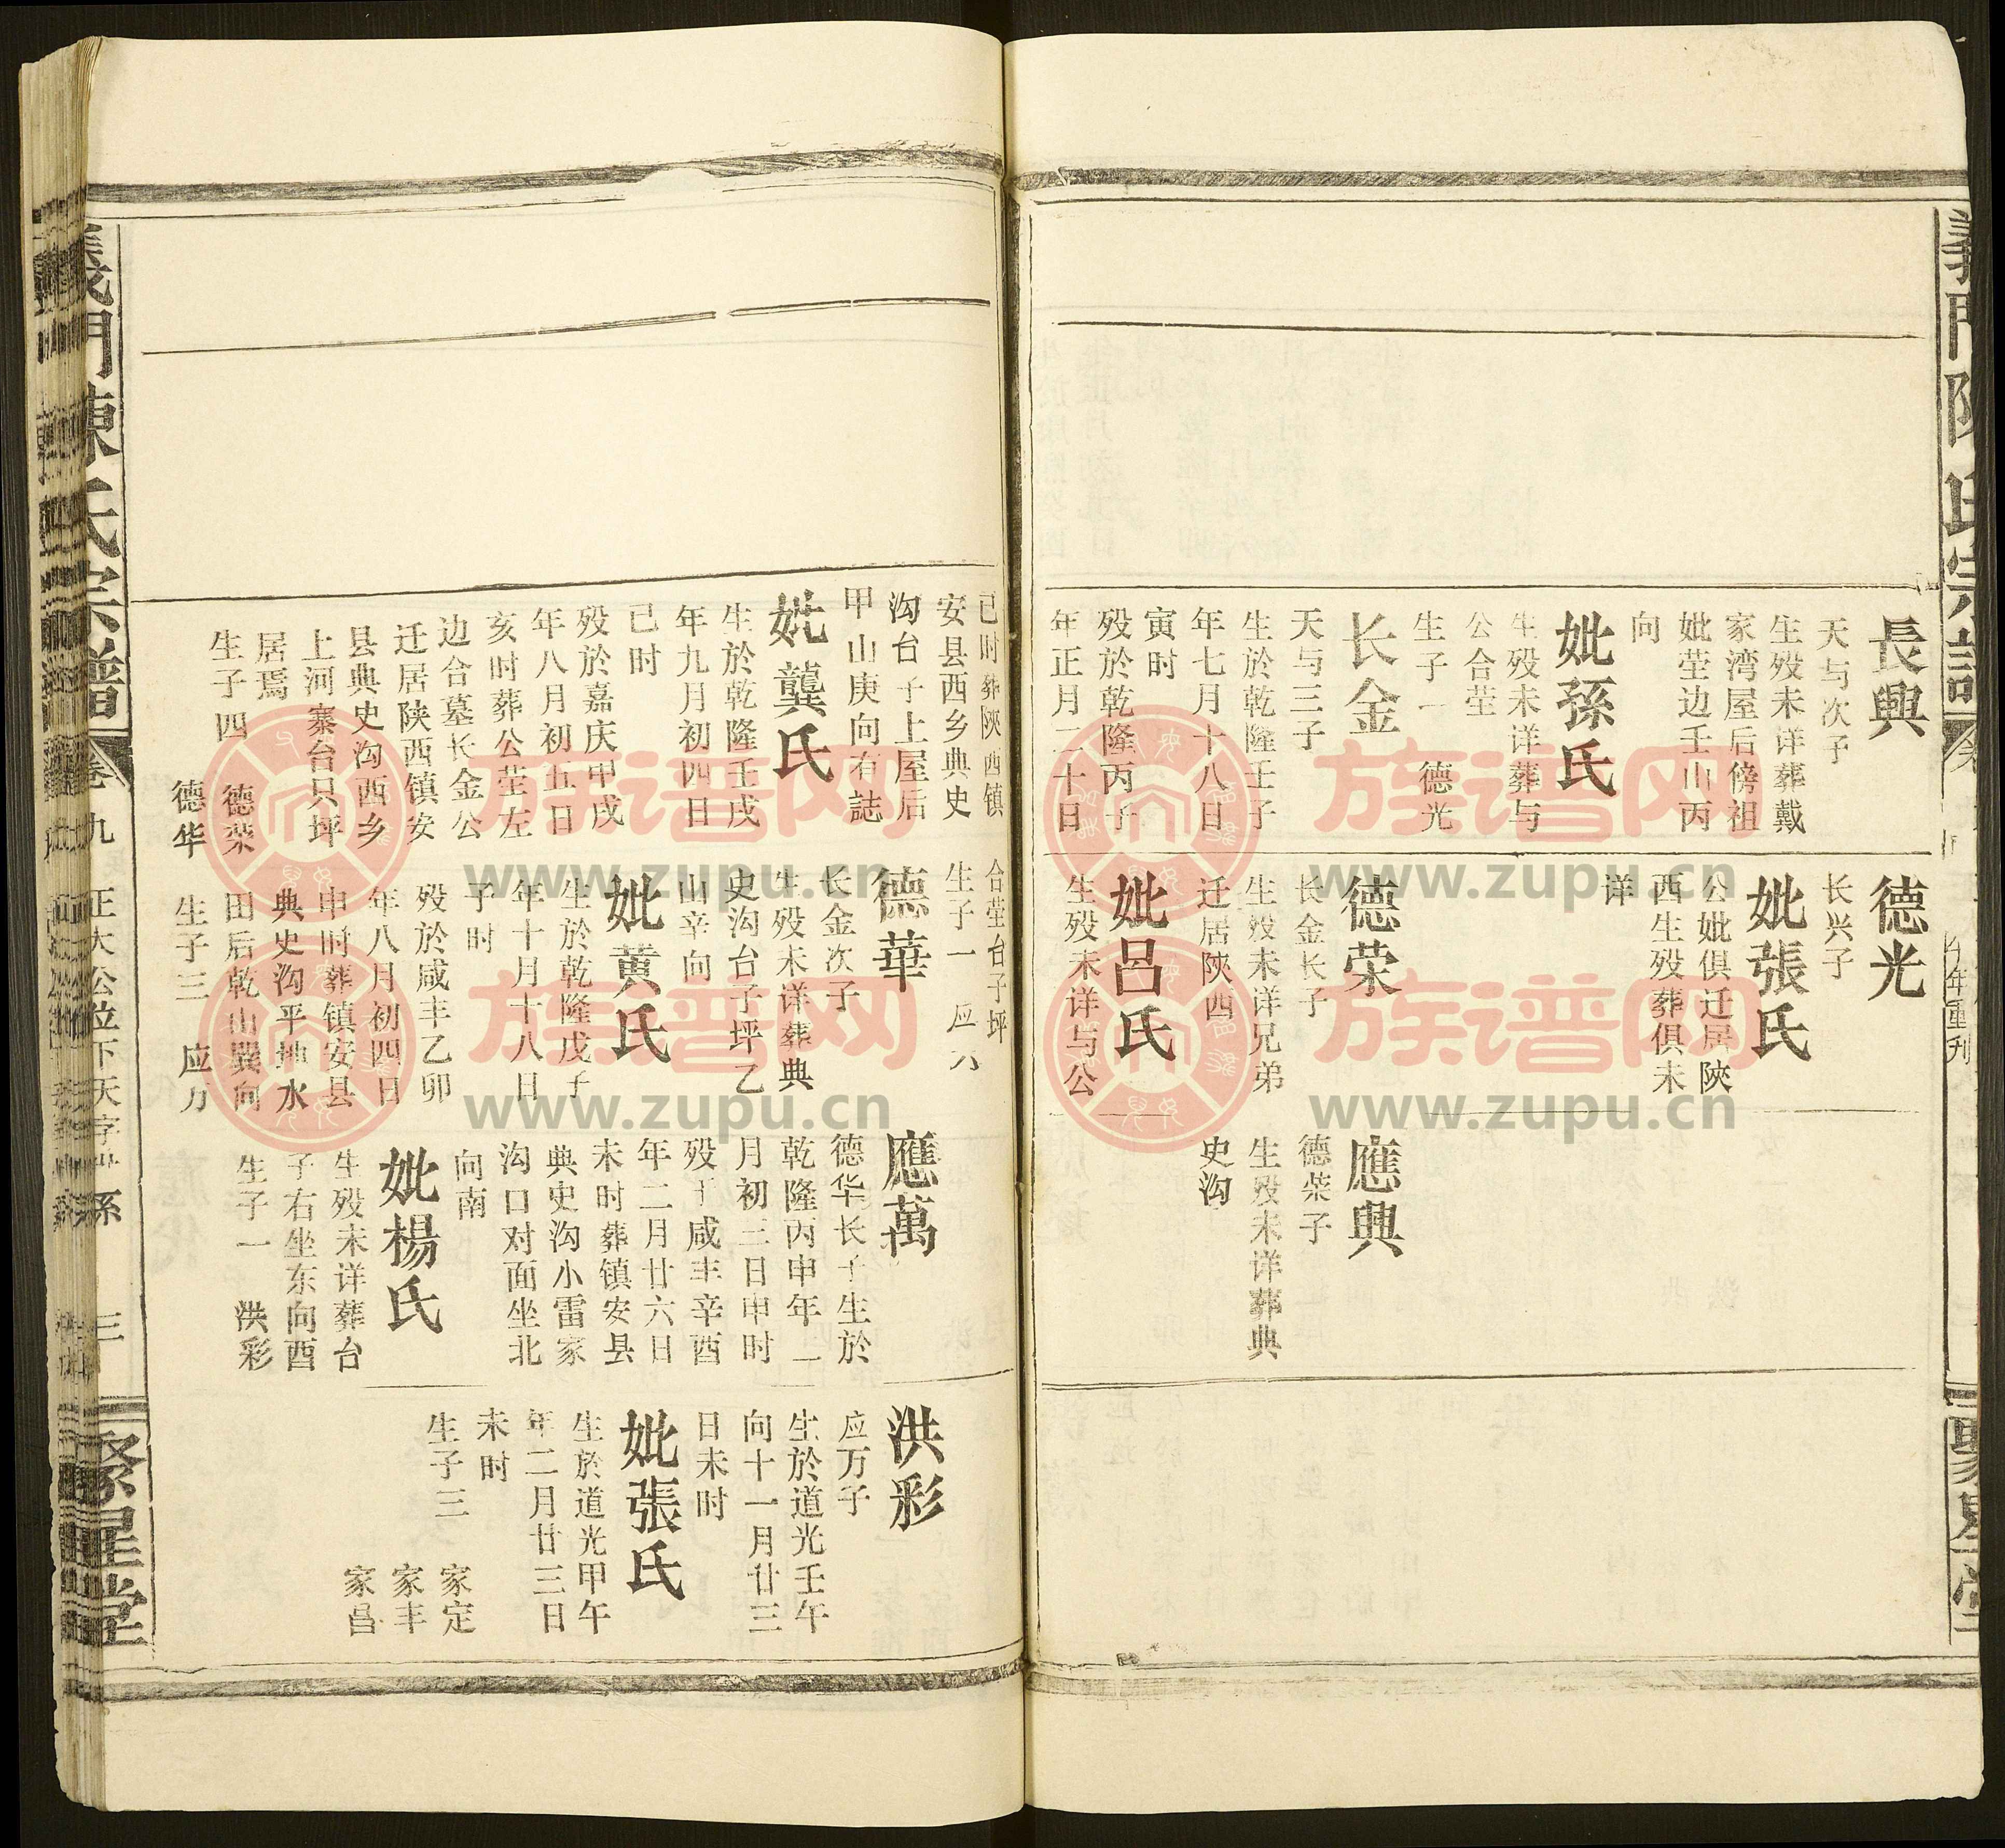 長興
天与次子
生殁未详葬戴
家湾屋后傍祖
妣茔边壬山丙
向
妣孫氏
生殁未详葬与
公合茔
生子一 德光
长金
天与三子
生於乾隆壬子
年七月十八日
寅时
殁於乾隆丙子
年正月二十日
德光
长兴子
妣張氏
公妣俱迁居陕
西生殁葬俱未
详
德荣
长金长子
生殁未详兄弟
迁居陕西
妣呂氏
生殁未详与公
應興
德荣子
生殁未详葬典
史沟
巳时葬陕西镇
安县西乡典史
沟台子上屋后
甲山庚向有誌
妣龔氏
生於乾隆壬戌
年九月初四日
巳时
殁於嘉庆甲戌
年八月初五日
亥时葬公茔左
边合墓长金公
迁居陕西镇安
县典史沟西乡
上河寨台只坪
居焉
生子四 德荣
德华
合茔台子坪
生子一 应六
德華
长金次子
生殁未详葬典
史沟台子坪乙
山辛向
妣黄氏
生於乾隆戊子
年十月十八日
子时
殁於咸丰乙卯
年八月初四日
申时葬镇安县
典史沟平地水
田后乾山巽向
生子三 应万
應萬
德华长子生於
乾隆丙申年一
月初三日申时
殁于咸丰辛酉
年二月廿六日
未时葬镇安县
典史沟小雷家
沟口对面坐北
向南
妣楊氏
生殁未详葬台
子右坐东向酉
生子一 洪彩
洪彩
应万子
生於道光壬午
向十一月廿三
日未时
妣張氏
生於道光甲午
年二月廿三日
未时
生子三 家定
家丰
家昌
義門陳氏宗譜
卷九
正大公位下天字世系
三
聚星堂
族谱网
www.zupu.cn
族谱网
www.zupu.cn
族谱网
www.zupu.cn
族谱网
www.zupu.cn